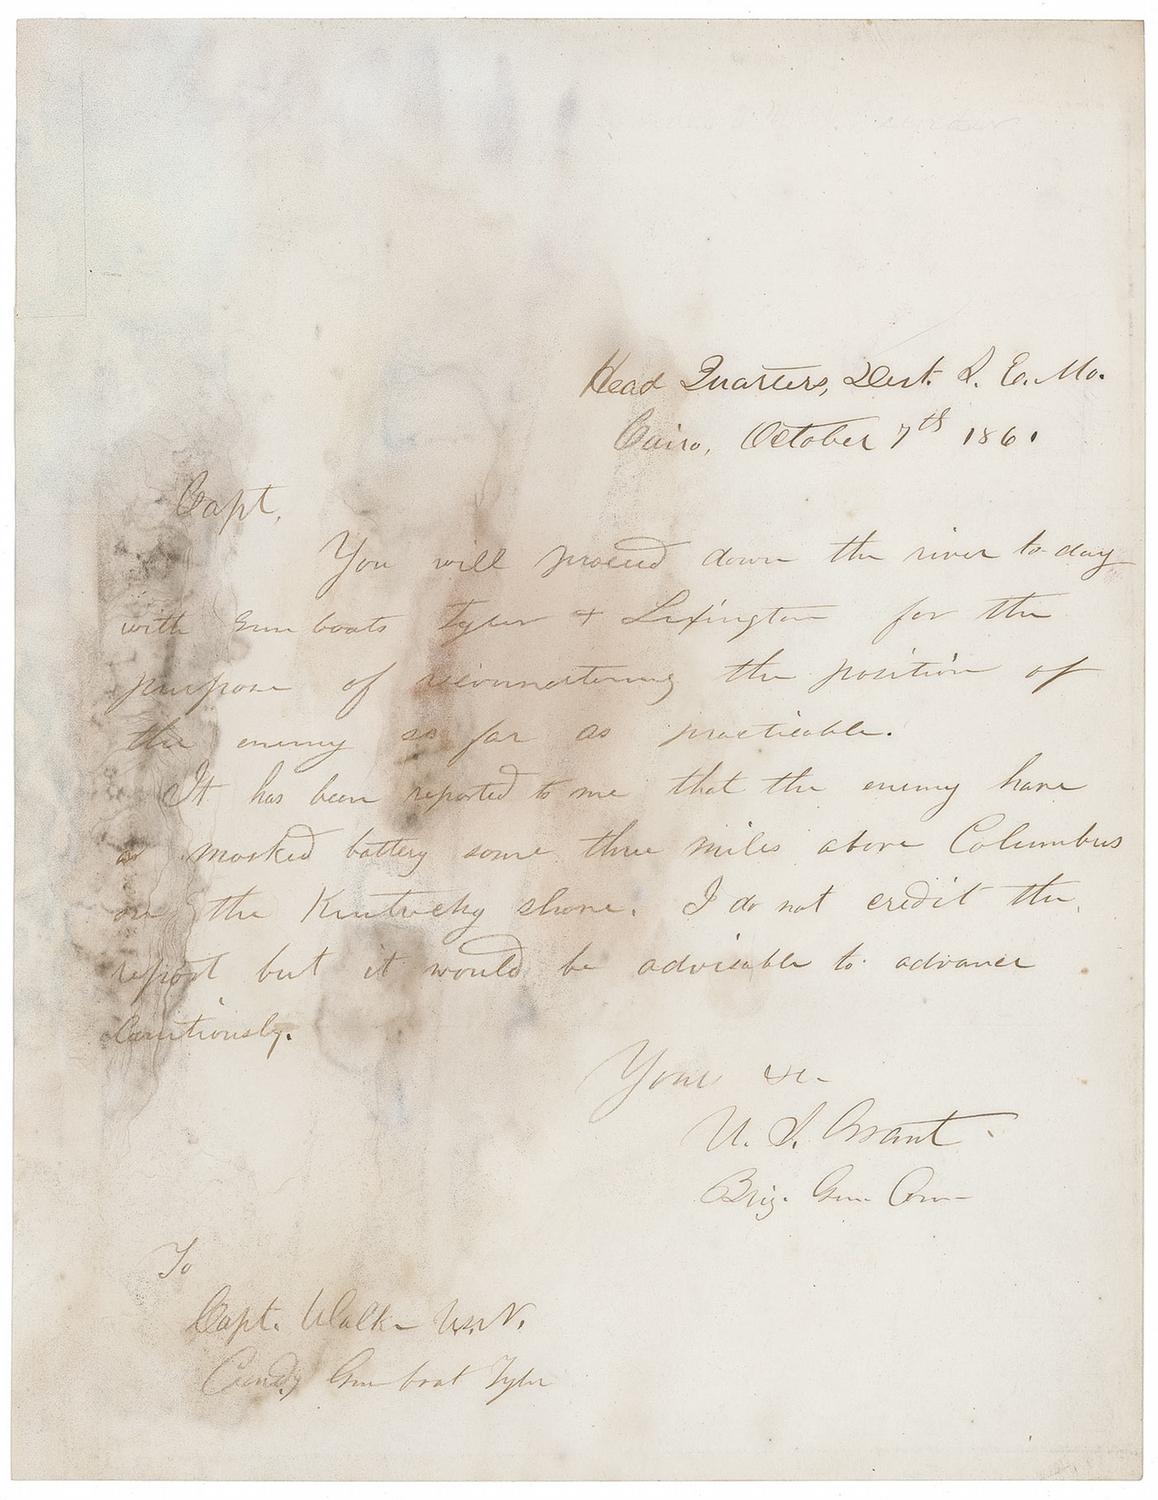 Head Quarters, Dist. S. E. Mo.
Cairo, October 7th 1861
Capt.
You will proceed down the river to-day
with Gun boats Tyler & Lexington for the
purpose of reconnoitering the position of
the enemy so far as practicable.
It has been reported to me that the enemy have
a masked battery some three miles above Columbus
on the Kentucky shore. I do not credit the
report but it would be advisable to advance
Cautiously.
Yours &c.
U. S. Grant
Brig. Gen. Com
To
Capt. Walke U.S.N.
Comdg Gun boat Tyler